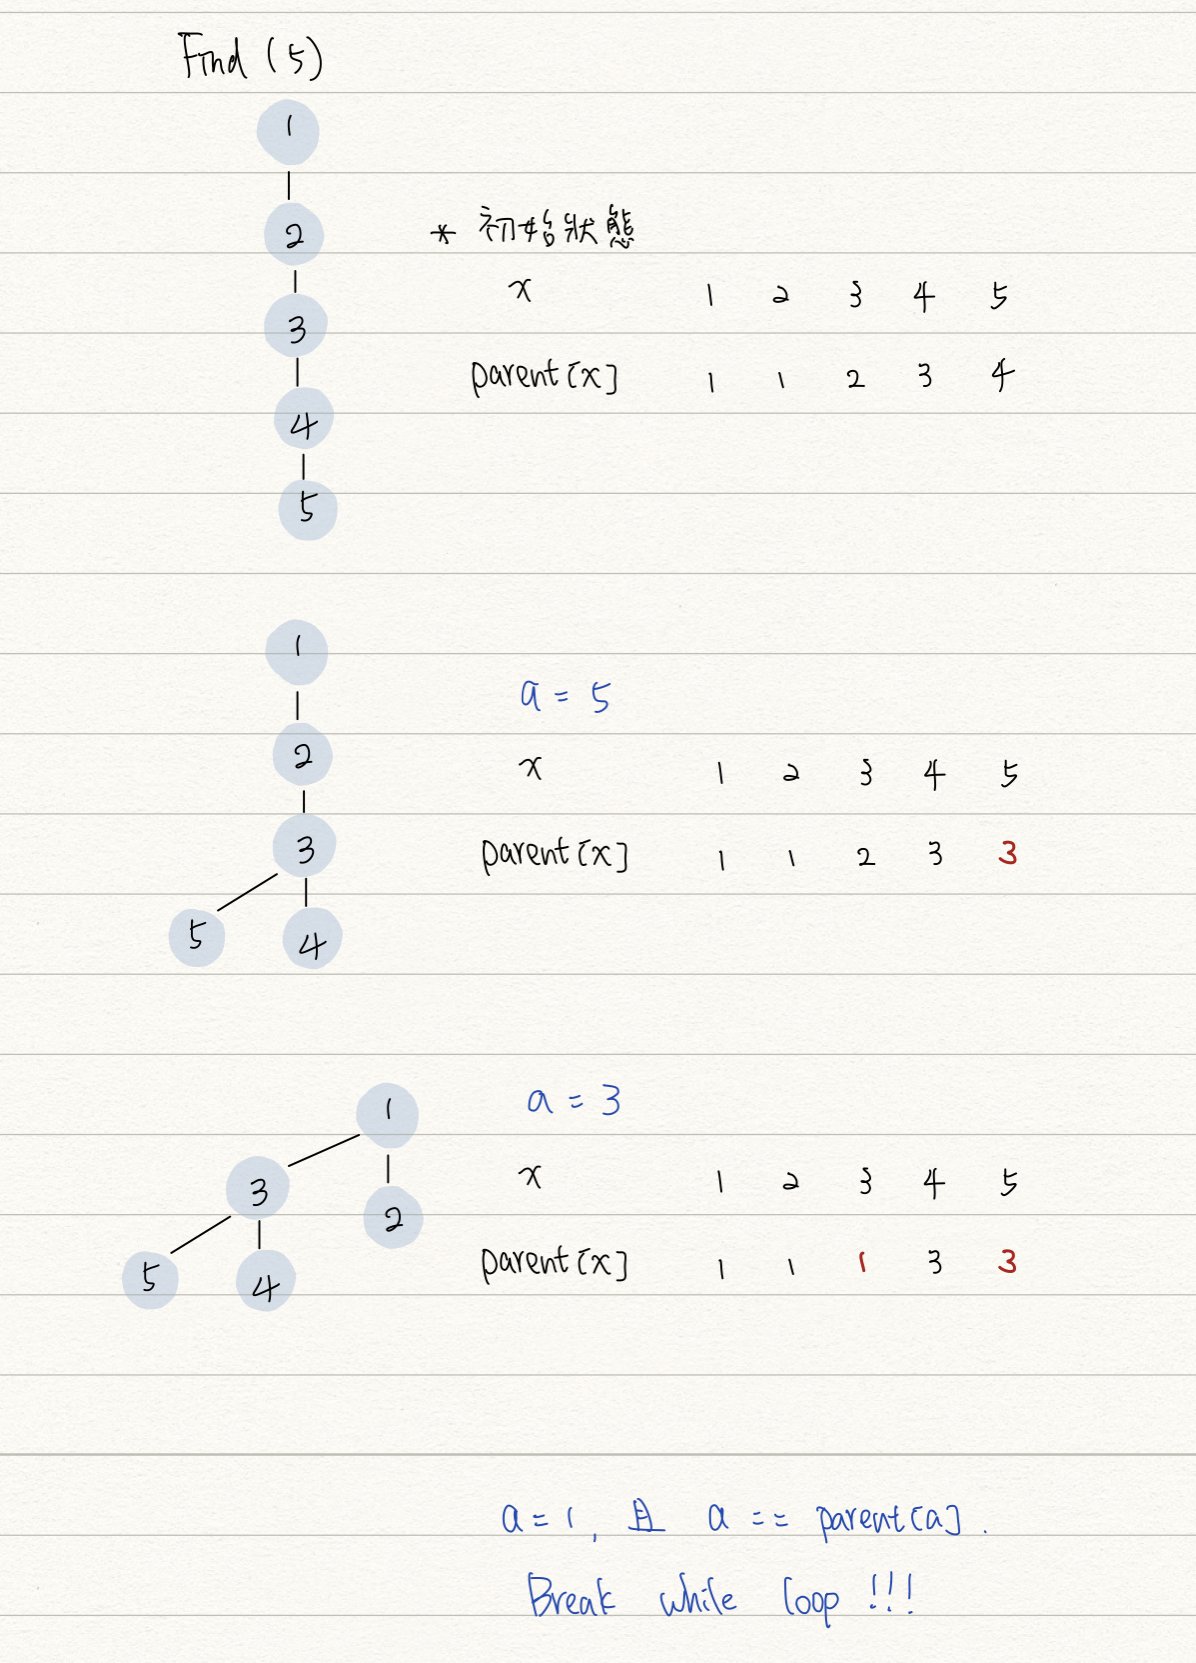 Find (5)
1
2
3
4
5
* 初始狀態
x 1 2 3 4 5
parent[x] 1 1 2 3 4
1
2
3
5 4
a = 5
x 1 2 3 4 5
parent[x] 1 1 2 3 3
1
3 2
5 4
a = 3
x 1 2 3 4 5
parent[x] 1 1 1 3 3
a = 1, 且 a == parent[a].
Break while loop !!!